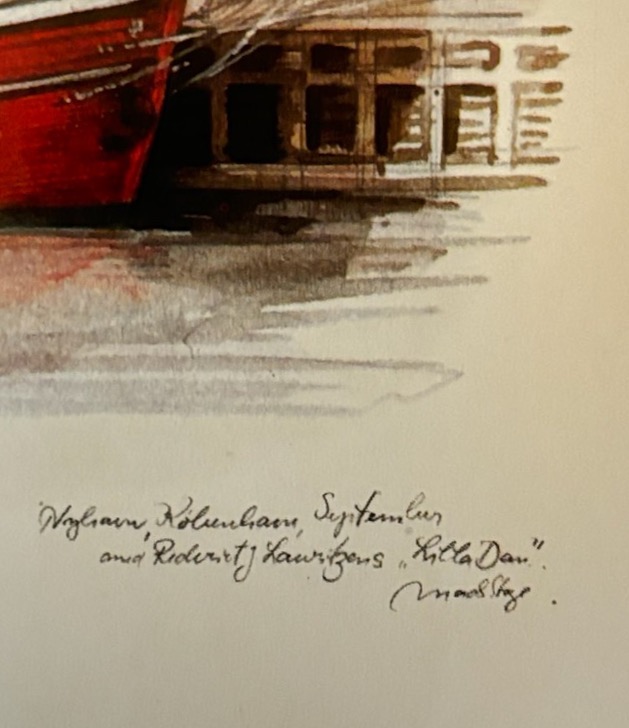 Nyhavn, København, September
and Rederiet J Lauritzens „Lilla Dan".
Mads Stage.